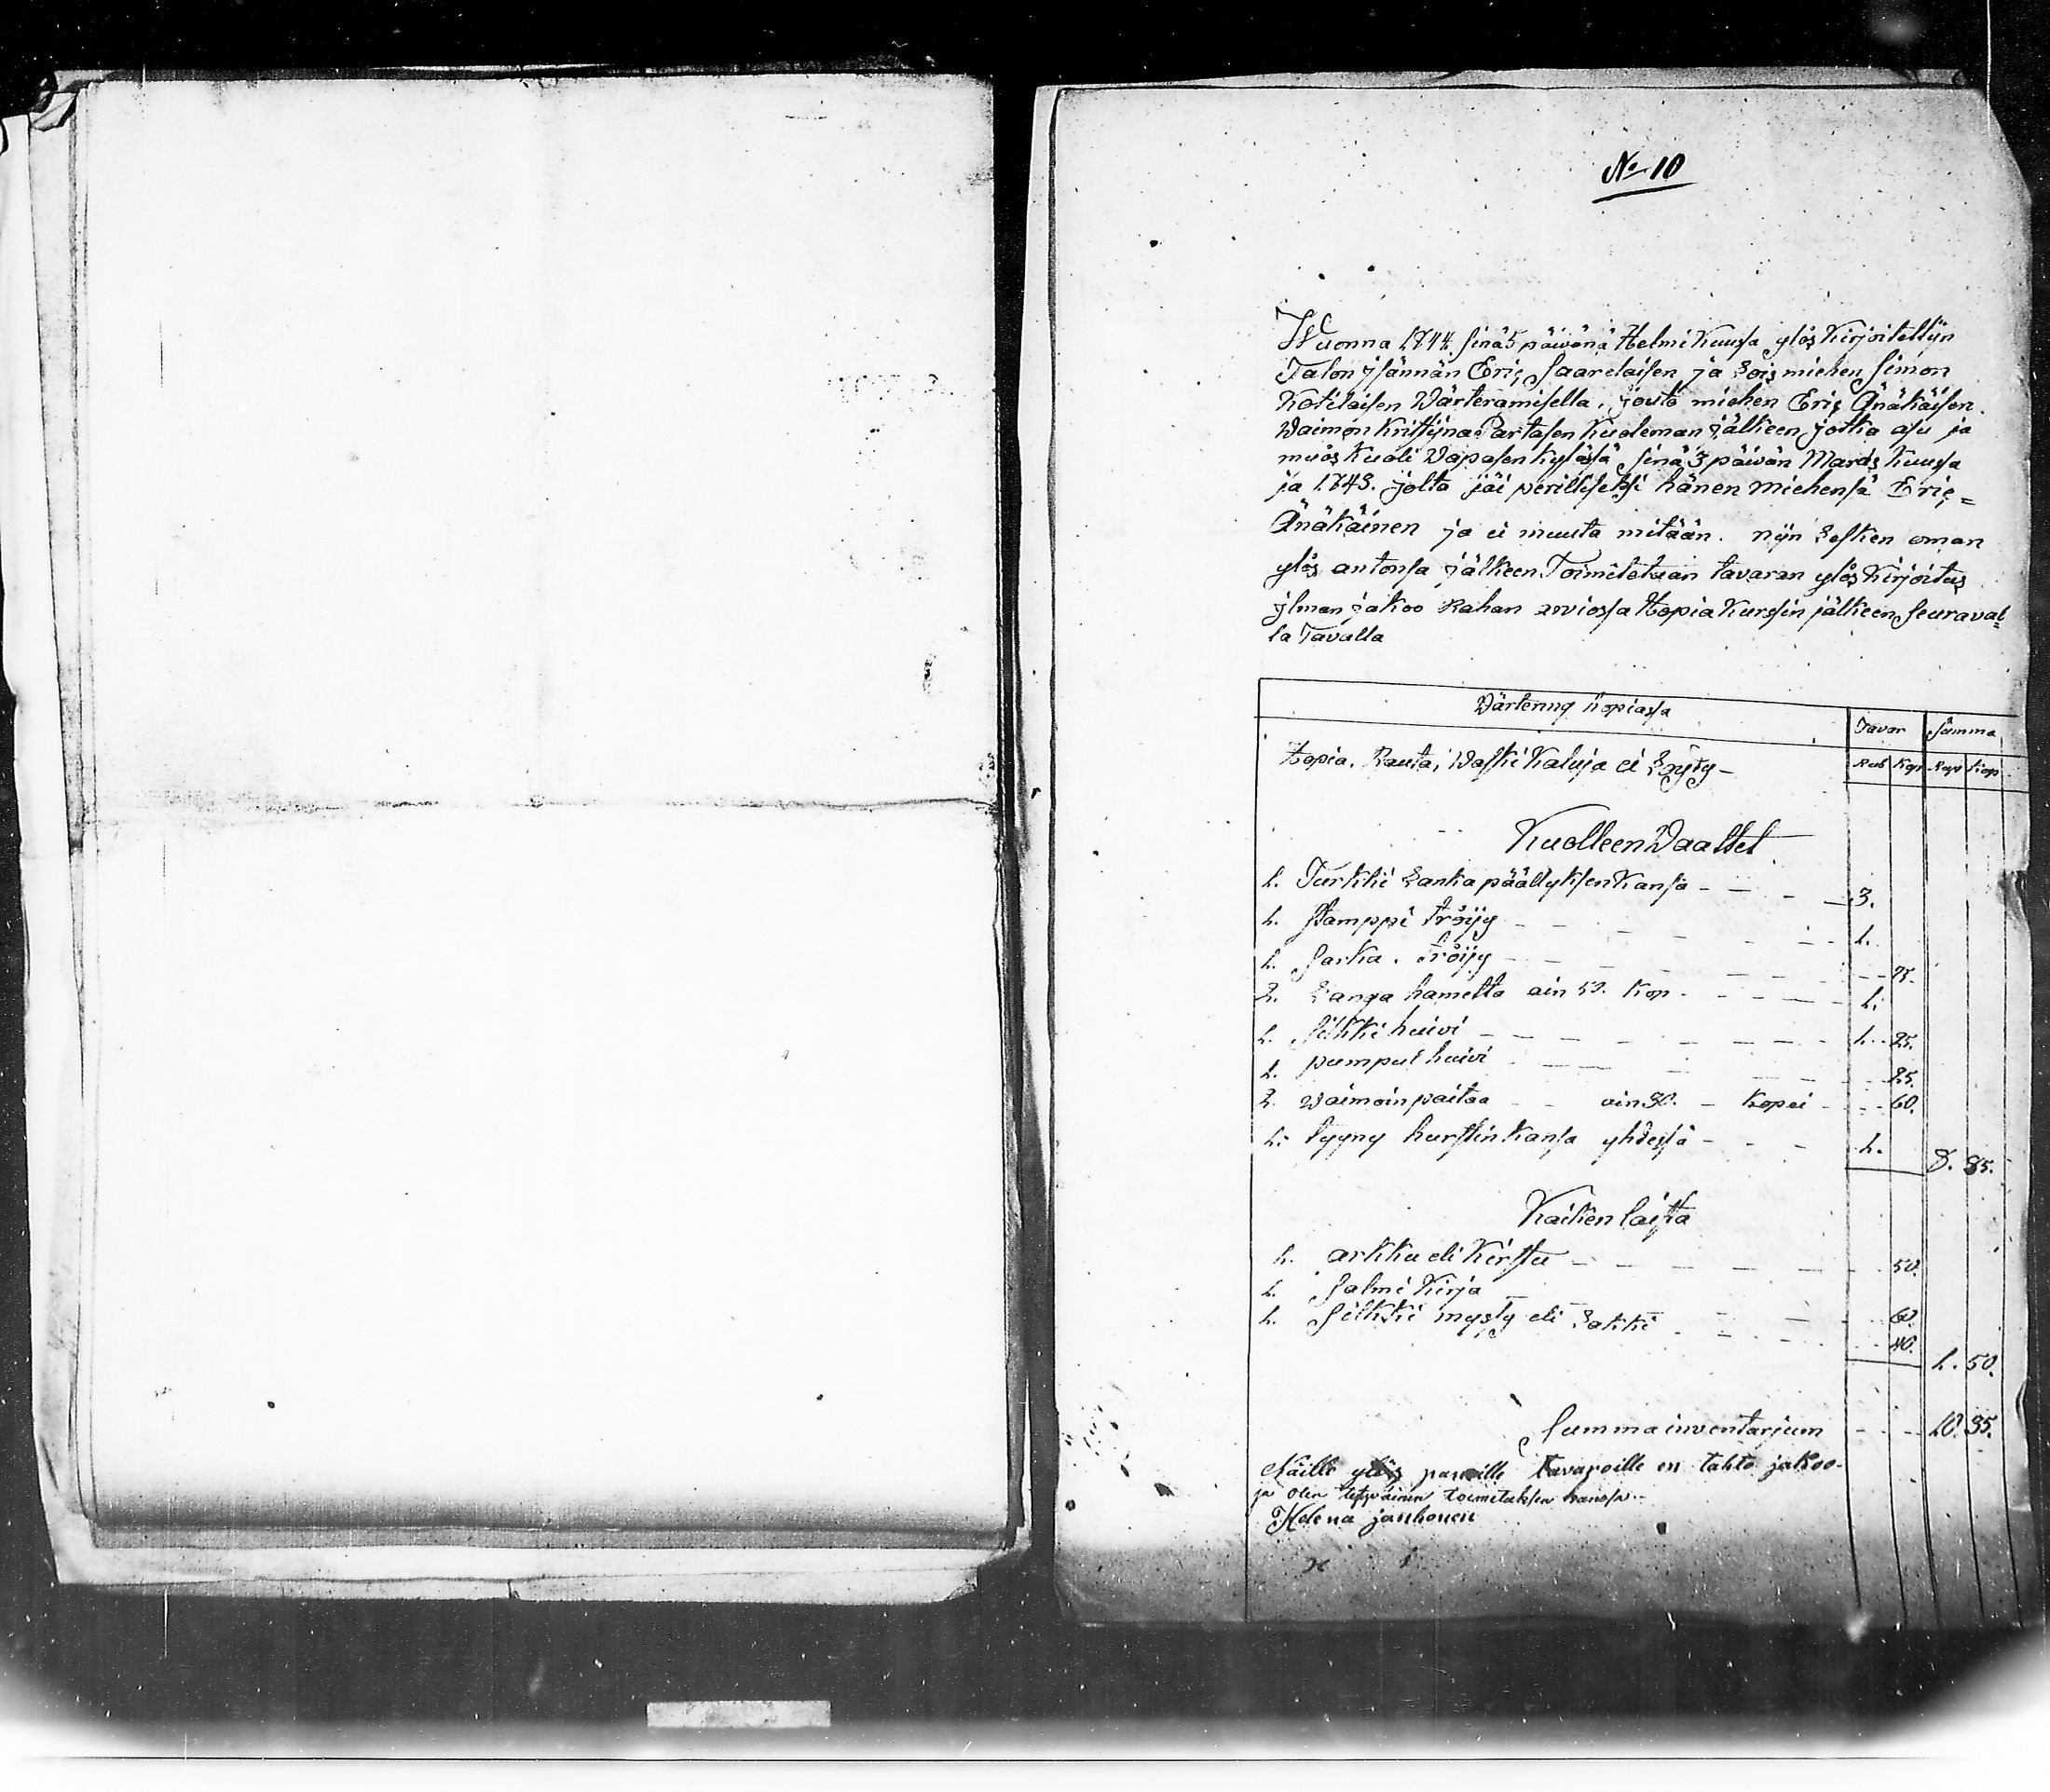 No 10
Wuonna 1844. sinä 5 päivänä Helmi Kuusa ylös Kirjoitettijn
Talon jsännän Eric Saarelaisen ja Lois miehen Simon
Kotilaisen Värteramisella, jouto miehen Eric Änäkäisen.
Waimon Kristijna Partasen Kuoleman jälkeen jotka asu ja
muös Kuoli Vapasen Kylässä sinä 3 päivän Mards Kuussa
ja 1843. jolta jäi perilliseksi hänen Miehensä Eric=
Änäkäinen ja ei muuta mitään. nijn Lesken oman
ylös antonsa jälkeen Toimitetaan tavaran ylös Kirjoitus
jlman jakoo Rahan arviossa Hopia Kurssin jälkeen seuraval=
la Tavalla
Värtering hopiassa Tavar Summa
Hopia, Rauta, Waski Kaluja ei Löyty - Rub Kop Rup Kop
Kuolleen Vaattet
1. Turkki Lanka päällyksen Kansa - 3.
1. Stamppi tröijy - 1.
1. Sarka. Tröijy - 75.
2. Langa hametta ain 50. Kop. - 1.
1. Silkki huivi - 1. 25.
1. pumpul huivi - 25.
2. Waimoin paitaa - ain 30. - Kopei - 60.
1. tyyny hurstin kansa yhdessä - 1. 8. 85.
Kaiken laista
1. arkku eli Kirstu - 50.
1. Salmi Kirja - 60.
1. Silkki myssy eli Lakki - 40.
1. 50.
Summa inventarjum - 10. 35.
Näille ylös pannille tavaroille en tahto jakoo-
ja olen tytyväinen toimetuksen kanssa -
Helena janhonen